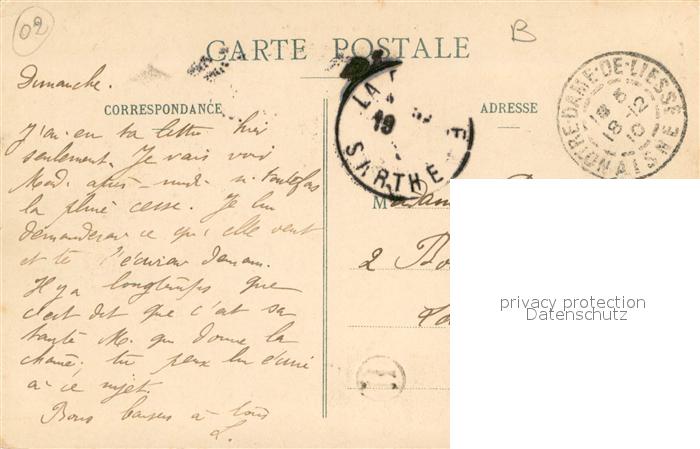 02
B
CARTE POSTALE
CORRESPONDANCE
ADRESSE
Dimanche.
J'ai eu ta lettre hier
seulement. Je vais voir
Mad. après-midi si toutefois
la pluie cesse. Je lui
demanderai ce qu'elle veut
et te l'écrirai demain.
Il y a longtemps que
c'est dit que c'est sa
tante M. qui donne la
; tu peux lui écrire
à ce sujet.
Bons baisers à tous
L.
LA
19
SARTHE
NOTRE-DAME-DE-LIESSE
AISNE
Madam
2
privacy protection
Datenschutz